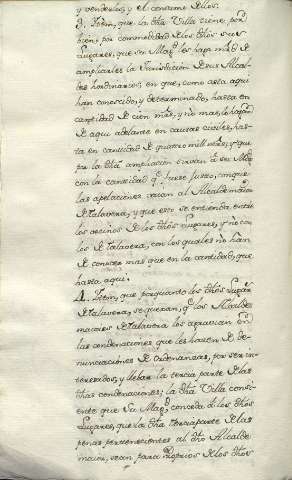 y venderlos, y el consumo de los.
3. Ittem, que la dha Villa tiene por
bien, por commodidad de los dhos sus
Lugares, que su Magd les haga mrd de
ampliarles la Jurisdicion de sus Alcal-
des hordinarios, en que, como asta aqui
han conocido, y determinado, hasta en
cantidad de cien mrs, y no mas, lo hagan
de aqui adelante en causas civiles, has-
ta en cantidad de quatro mill mrs, y que
por la dha ampliacion sirvan a su Magd
con la cantidad q fuere justo, conque
las apelaciones vaian al Alcalde maior
de Talavera, y que esto se entienda, entre
los vecinos de los dhos Lugares, y no con
los de Talavera, con los quales no han
de conocer mas que en la cantidad, que
hasta aqui.
4. Ittem, que porquanto los dhos Lugares
de Talavera, se quejan, q los Alcaldes
maiores de Talavera los agravian en
las condenaciones que les hacen de de-
nunciaciones de Ordenanzas, por ser in-
teresados, y llebar la tercia parte de las
dhas condenaciones; la dha Villa consi-
ente que Su Magd conceda a los dhos
Lugares, que la dha tercia parte de las
penas pertenecientes al dho Alcalde
maior, sean para Propios de los dhos